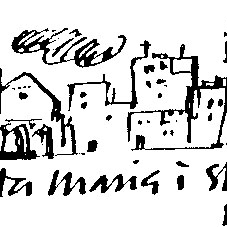 ta maria i s